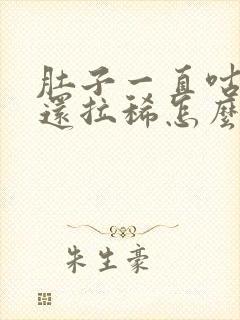 肚子一直咕
還拉稀怎麼
朱生豪